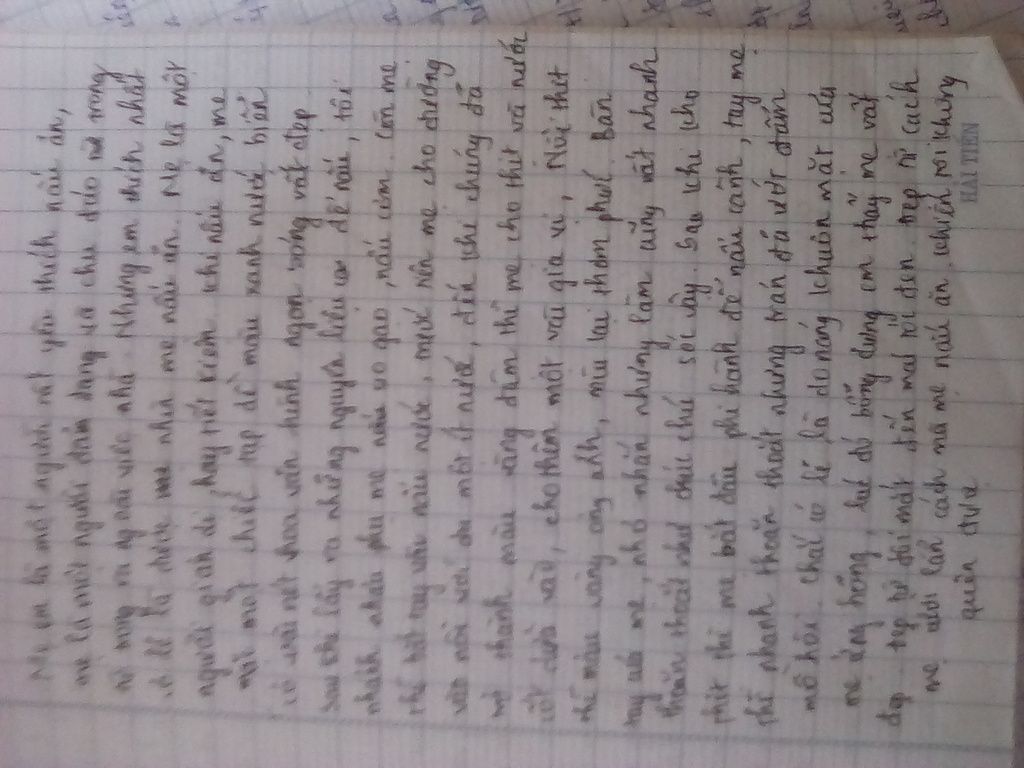 Mẹ em là một người rất yêu thích nấu ăn,
mẹ là một người đảm đang và chu đáo trong
việc nhà. Nhưng em thích nhất
là được mẹ nhà mẹ nấu ăn. Mẹ là một
người giản dị, hay khi nấu ăn, mẹ
mặc một chiếc tạp dề màu xanh nước biển
có vài nét hoa văn hình ngọn sóng rất đẹp.
Sau khi lấy ra những nguyên liệu để nấu, tôi
nhanh nhảu phụ mẹ vo gạo, nấu cơm. Còn mẹ
thì bắt tay vào nấu nước, mẹ cho đường
vào nồi với cho một ít nước, đến khi chúng đã
trở thành màu vàng đậm thì mẹ cho thịt và nước
cốt dừa vào, cho thêm một vài gia vị, Nồi thịt
thì màu vàng óng ánh, mùi lại thơm phức. Bàn
tay của mẹ, nhỏ nhắn nhưng làm cũng rất nhanh
thoăn thoắt như chiếc chế sợi vậy. Sau khi kho
thịt thì mẹ bắt đầu phi hành để nấu canh, tay mẹ
thì nhanh thoăn thoắt nhưng trán đã ướt đẫm
mồ hôi. chắc có lẽ là do nóng khuôn mặt của
mẹ ửng hồng, lúc đó bỗng dưng em thấy mẹ rất
đẹp. đẹp từ đôi mắt đến mái tóc đen. đẹp từ cách
mẹ cười lẫn cách mà mẹ nấu ăn khiến tôi không
quên được
HẢI TIẾN